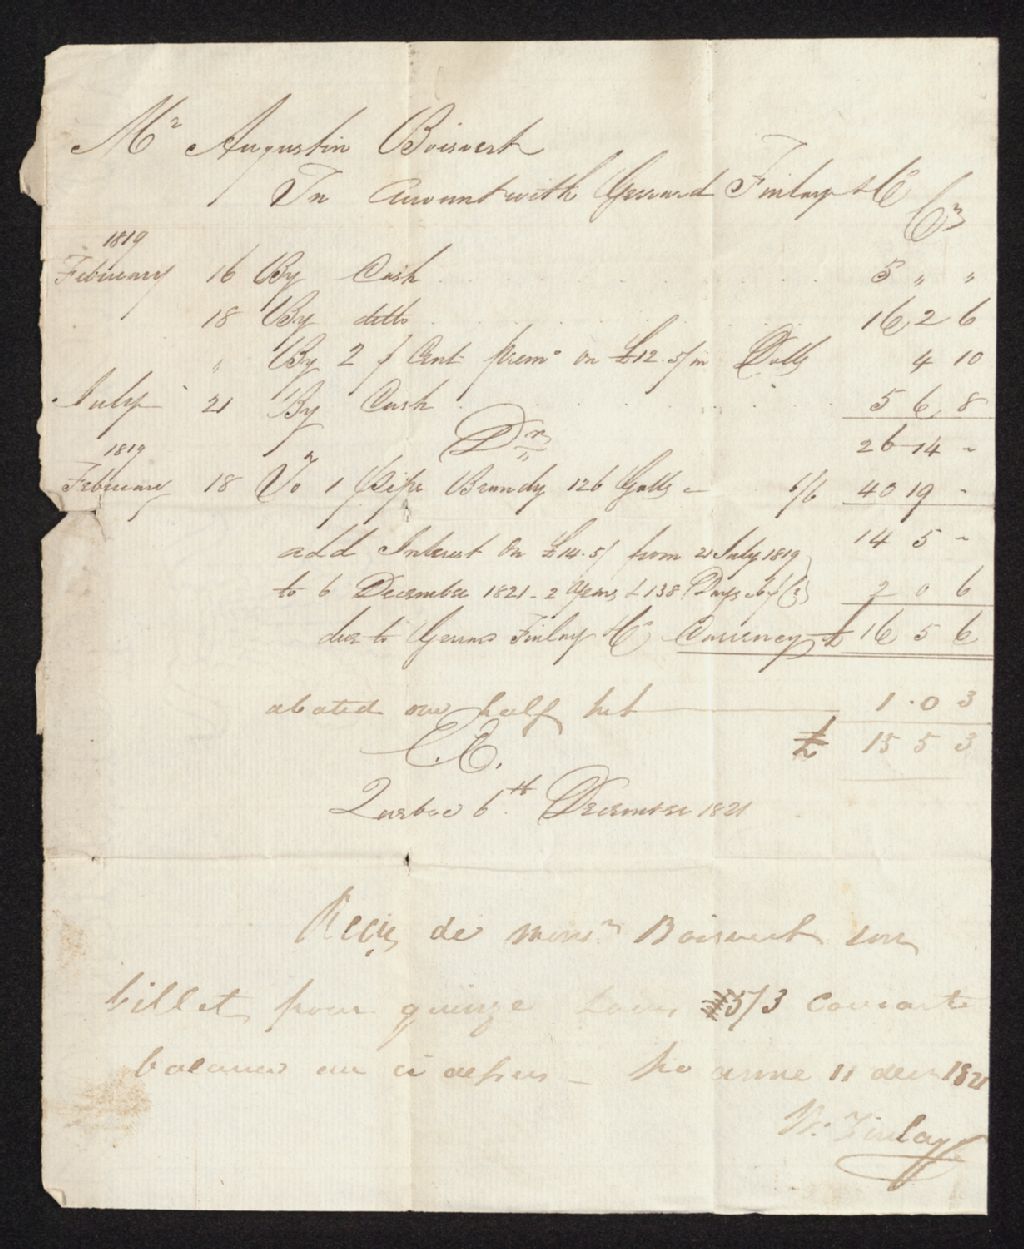 Mr Augustin Boisvert
In Account with Gerrard Finlay & Co
Cr
1819
February 16 By Cash 5 " "
18 By ditto 16 2 6
" By 2 p Cent prem. on £12.5/ in Dolls 4 10
July 21 By Cash 5 6 8
Dr 26 14 -
1819
February 18 To 1 Pipe Brandy 126 Galls - 6/6 40 19 -
14 5 -
add Interest on £14.5/ from 21 July 1819
to 6 December 1821 - 2 Years & 138 Days 2 0 6
due to Gerrard Finlay & Co Currency £ 16 5 6
abated one half Int 1 . 0 3
E.E. £ 15 5 3
Quebec 6th December 1821
Reçu de monsr Boisvert son
billet pour quinze Louis 5/3 Courant
balance au ci dessus - Ste anne 11 decr 1821
W. Finlay